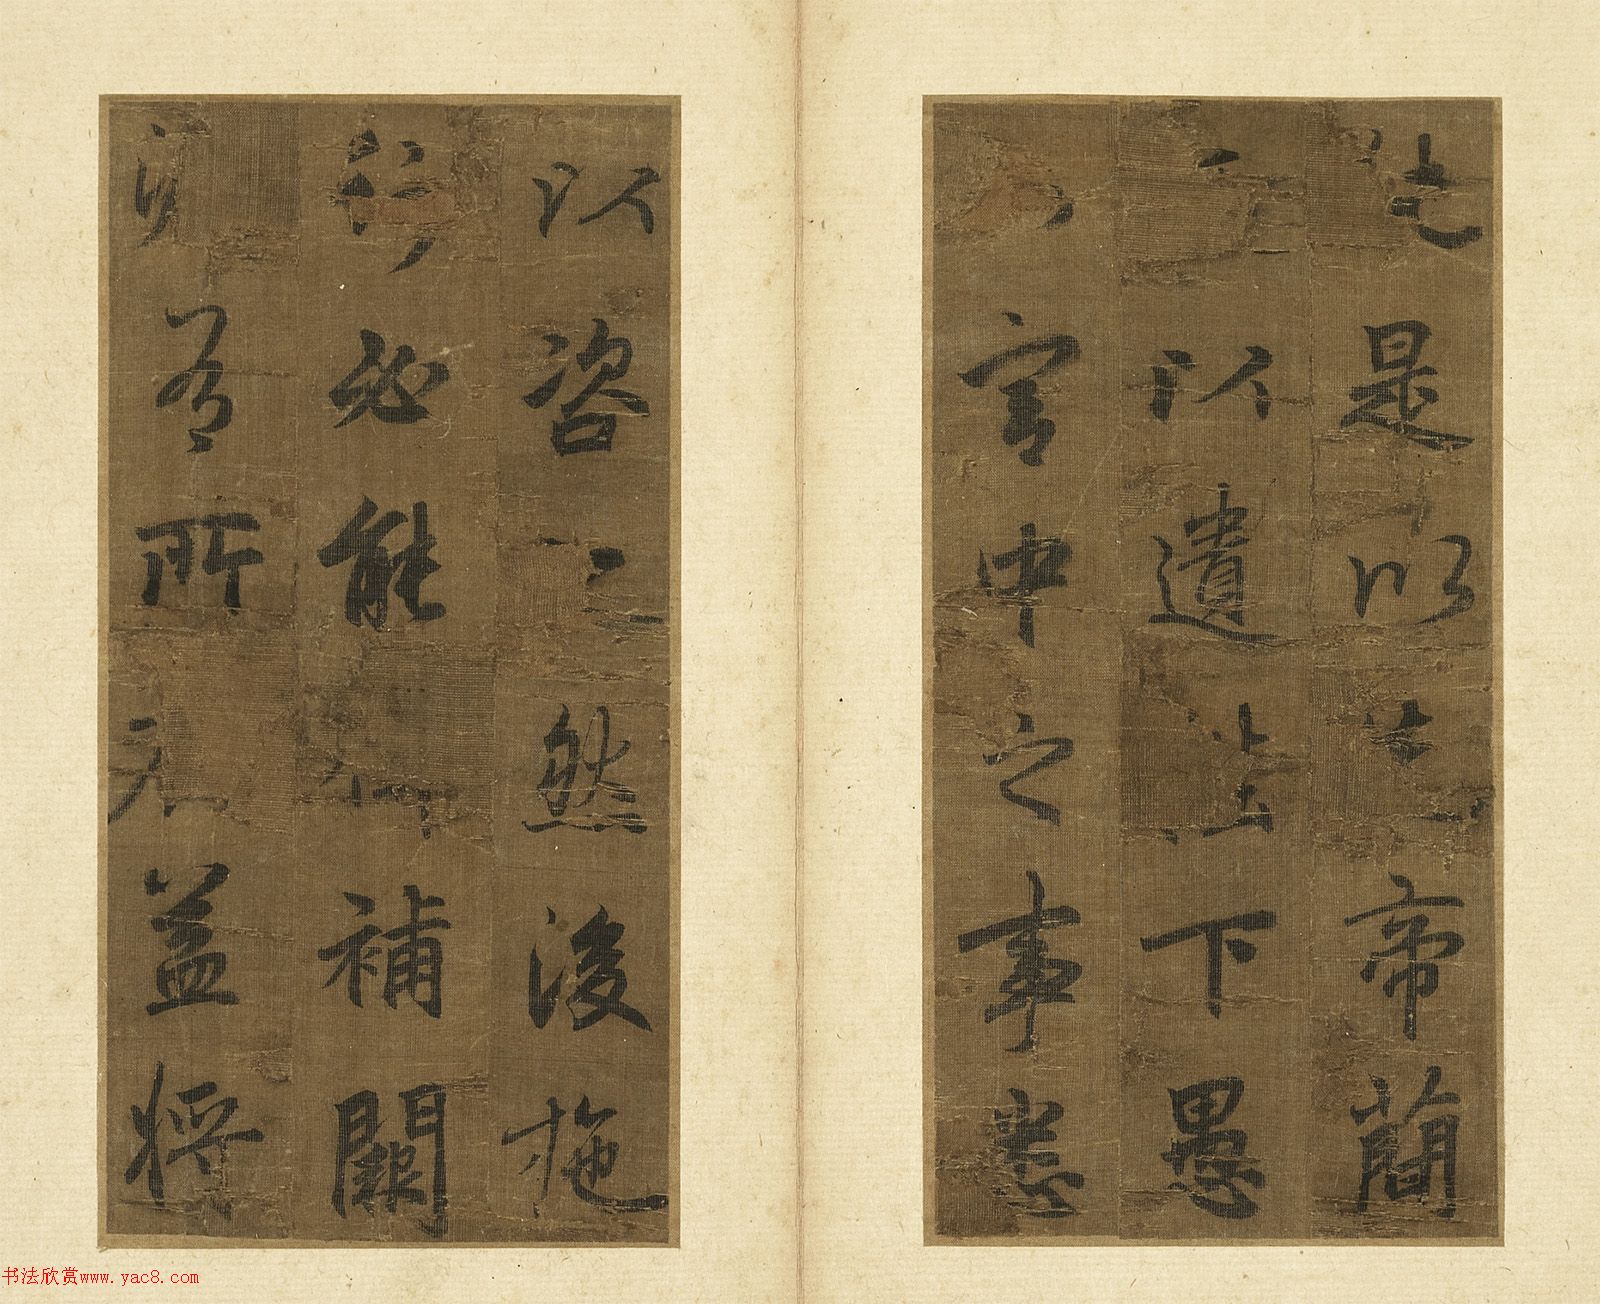 是以先帝簡
以遺陛下愚
宮中之事悉
以咨然後施
行必能補闕
有所益將
书法欣赏www.yac8.com